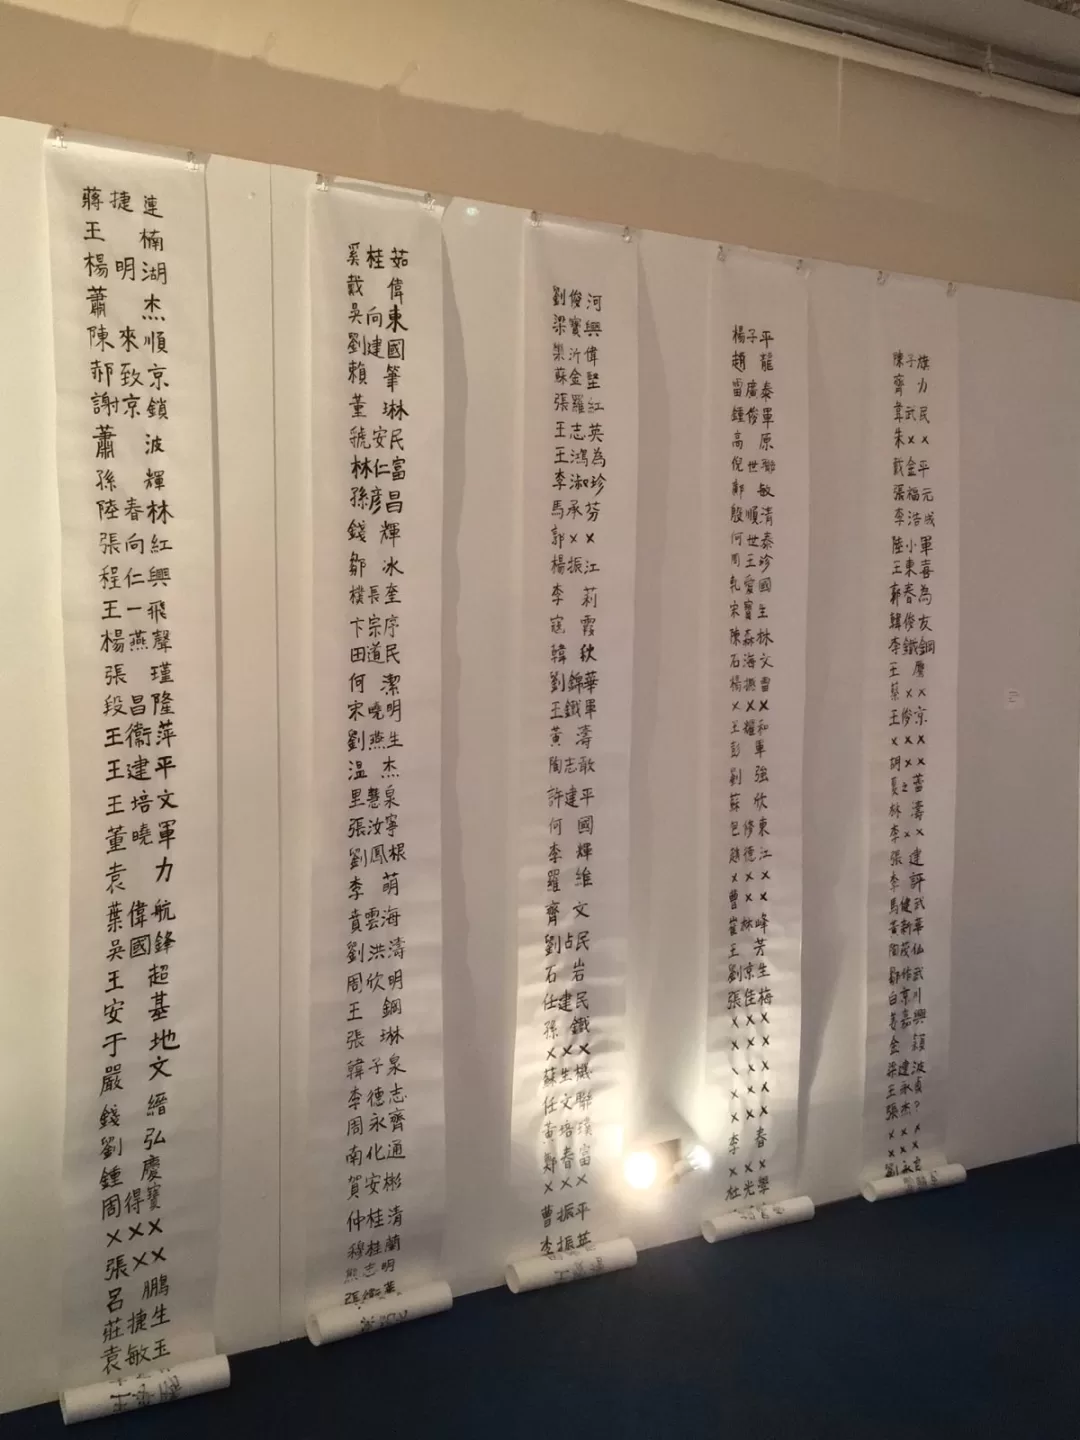 蔣捷連
王楠
楊明湖
蕭杰
陳來順
郝致京
謝京鎖
蕭波
孫輝
陸春林
張向紅
程仁興
王一飛
楊燕聲
張瑾
段昌隆
王衛萍
王建平
王培文
董曉軍
袁力
葉偉航
吳國鋒
王超
安基
于地
嚴文
錢縉
劉弘
鍾慶
周得寶
×××
張××
呂鵬
莊捷生
袁敏玉
奚桂茹
戴偉
吳向東
劉建國
賴筆
董琳
虢安民
林仁富
孫彥昌
錢輝
鄒冰
樸長奎
卞宗序
田道民
何潔
宋曉明
劉燕生
溫杰
里慧泉
張汝寧
劉鳳根
李萌
賁雲海
劉洪濤
周欣明
王鋼
張琳
韓子泉
李德志
周永齊
南化通
賀安彬
仲桂清
穆桂蘭
熊志明
劉俊河
梁寶興
欒沂偉
蘇金堅
張羅紅
王志英
王鴻為
李淑珍
馬承芬
郭××
楊振江
李莉
寇霞
韓秋
劉錦華
王鐵軍
黃濤
陶志敢
許建平
何國
李輝
羅維
齊文
劉占民
石岩
任建民
孫鐵
×××
蘇生機
任文聯
黃培璞
鄭春富
×××
曹振平
李振英
楊子平
趙龍
雷廣泰
鍾俊軍
高原
倪世聯
鄺敏
殷順清
何世泰
周玉珍
孔愛國
宋寶生
陳森林
石海文
楊振雷
×××
王耀和
彭軍
劉強
蘇欣
包修東
趙德江
×××
曹××
崔林峰
王芳
劉京生
張佳梅
×××
×××
×××
×××
李春
×××
杜光學
陳子旗
齊力
韋武民
朱××
戴金平
張福元
李浩成
陸小軍
王東喜
郭春為
韓俊友
李鐵鋼
王鷹
蔡××
王俊京
×××
胡××
夏之蕾
林濤
李××
張建
李評
馬健武
黃新華
陶茂仙
鄒作武
白京川
姜嘉興
金穎
梁建波
王永貞
張杰?
×××
×××